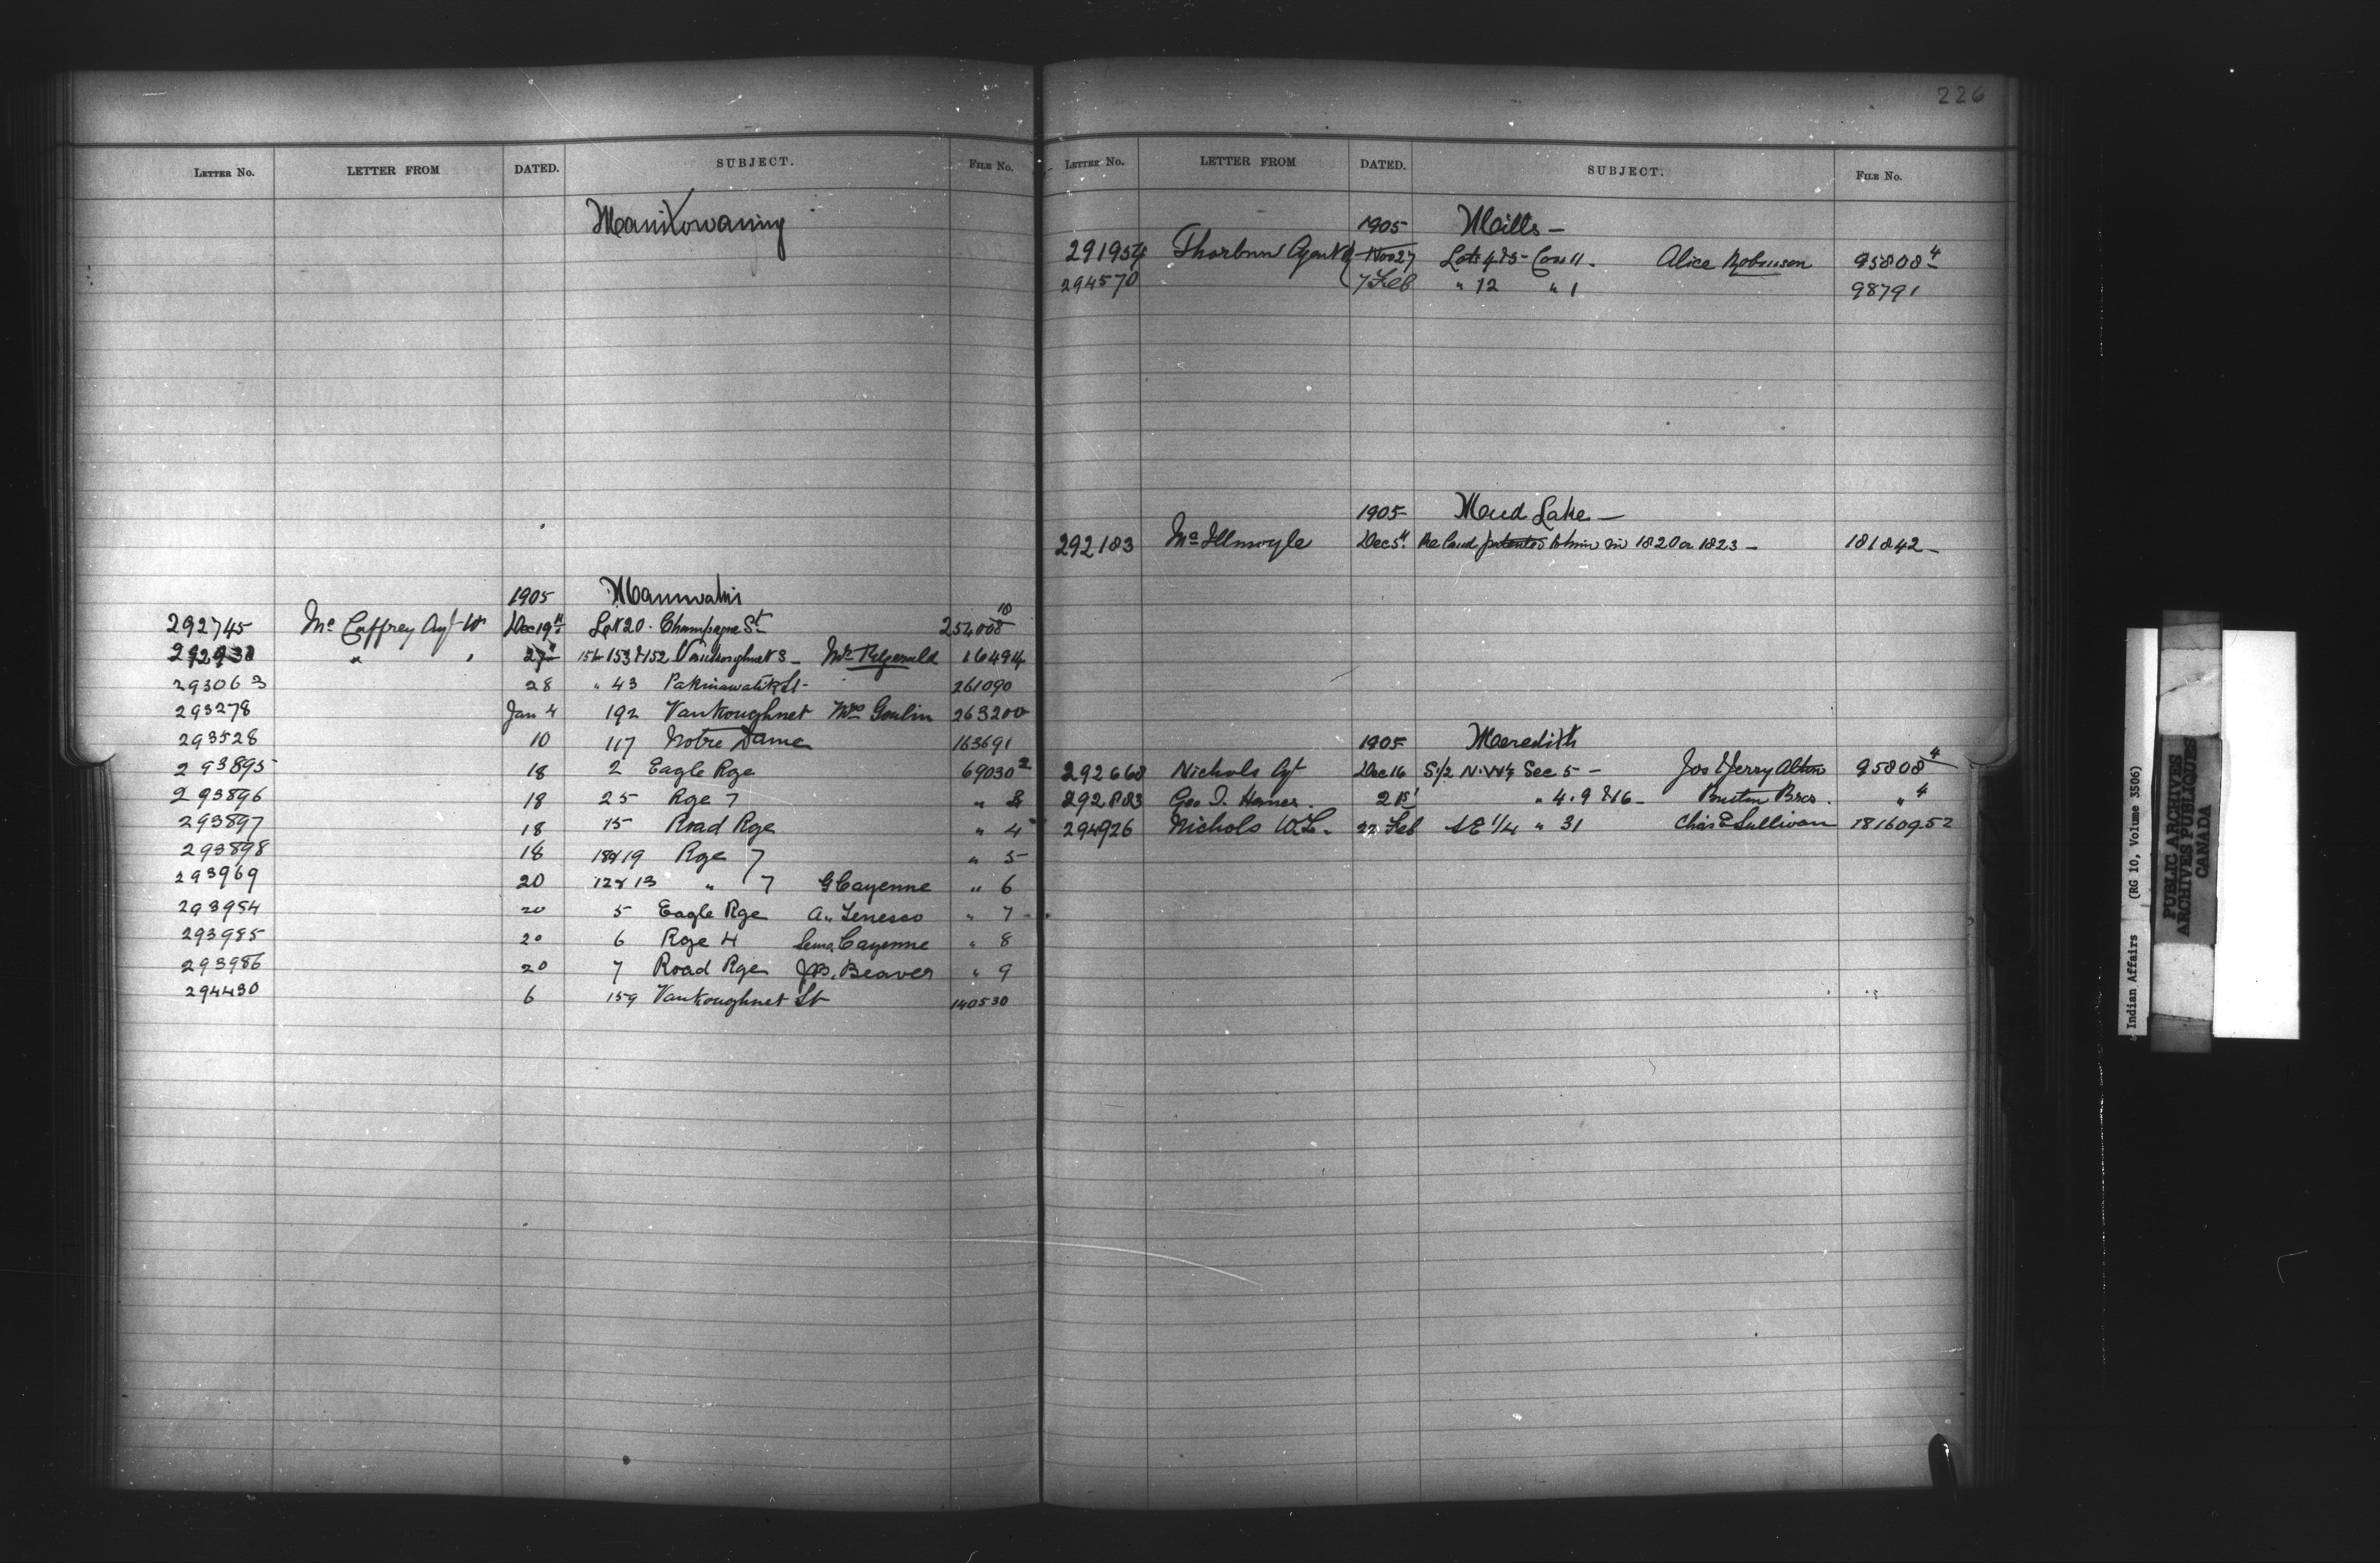 226
LETTER NO. LETTER FROM DATED. SUBJECT. FILE NO.
Manitowaning
1905 Maniwaki
292745 Mc Caffrey Agt W Dec 19th Lot 20 . Champagne St 254008 10
292930 " " 27th 153 & 152 Vankoughnet S - 16494
293063 28 " 43 Pakinawatik St - 261090
293278 Jan 4 192 Vankoughnet Mrs Goulin 263200
293528 10 117 Notre Dame 163691
293895 18 2 Eagle Rge 69030 2
293896 18 25 Rge 7 " 3
293897 18 15 Road Rge " 4
293898 18 18 & 19 Rge 7 " 5
293969 20 12 & 13 " 7 G Cayenne " 6
293954 20 5 Eagle Rge A. Tenesco " 7
293985 20 6 Rge 4 Cayenne " 8
293986 20 7 Road Rge J.B. Beaver " 9
294430 6 159 Vankoughnet St 140530
LETTER NO. LETTER FROM DATED. SUBJECT. FILE NO.
1905 Mills -
291954 Thorburn Agent W Nov 27 Lots 4 & 5 - Con 11 - Alice Robinson 95808 4
294570 7 Feb " 12 " 1 98791
1905 Mud Lake -
292183 Mc Illmoyle Dec 5th Re land patented to him in 1820 or 1823 - 181842 -
1905 Meredith
292668 Nichols Agt Dec 16 S/2 N.W 1/4 Sec 5 - Jos & Jerry Alton 95808 4
292883 Geo. I. 21st " 4. 9 & 16 - Burton Bros . " 4
294926 Nichols W.L. 22 Feb S E 1/4 " 31 Chas E Sullivan 181609 52
Indian Affairs (RG 10, Volume 3506)
PUBLIC ARCHIVES
ARCHIVES PUBLIQUES
CANADA